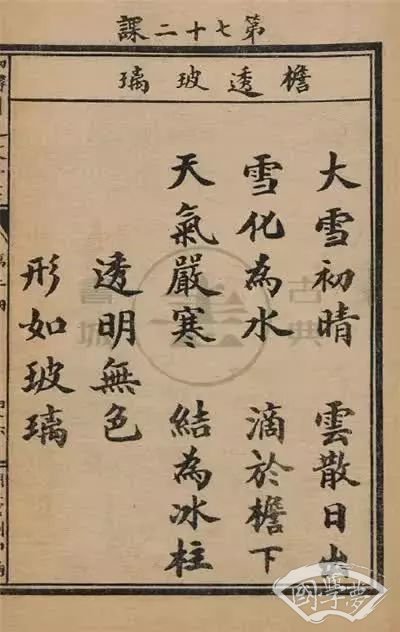 第七十二課
檐透玻璃
大雪初晴 雲散日出
雪化為水 滴於檐下
天氣嚴寒 結為冰柱
透明無色
形如玻璃
古典
書城
國學夢